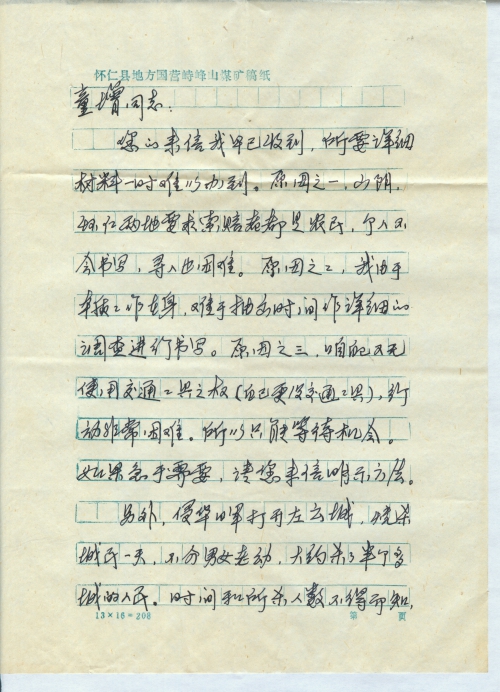 怀仁县地方国营峙峰山煤矿稿纸
童增同志:
您的来信我早已收到,所要详细
材料一时难以办到。原因之一,山阴,
怀仁两地要求索赔者都是农民,个人不
会书写,寻人也困难。原因之二,我由于
工作在身,难于抽出时间作详细的
调查进行书写。原因之三,咱又无
使用交通工具之权(自己更没交通工具),行
动非常困难。所以只能等待机会。
如果急于需要,请您来信明示方法。
另外,侵华日军打开左云城,烧杀
城民一天,不分男女老幼,大约杀了半个多
城的人民。时间和所杀人数不得而知,
13×16=208
第 页